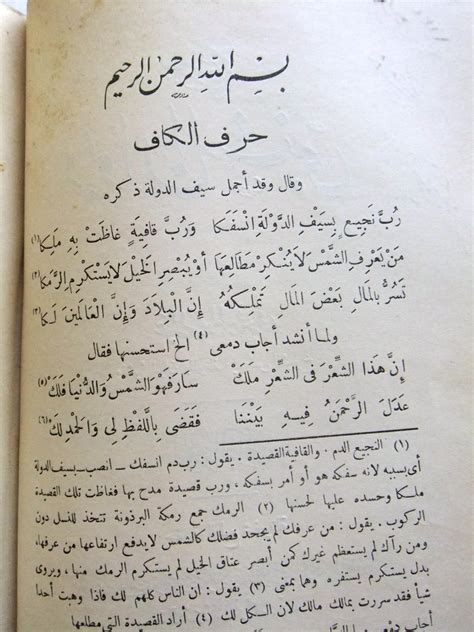 بِسْمِ اللهِ الرحمن الرحيم
حرف الكاف
وقال وقد أجمل سيف الدولة ذكره
رُبَّ نَجيعٍ بِسَيْفِ الدَّوْلَةِ انْسَفَكا وَرُبَّ قافِيَةٍ غاظَتْ بِهِ مَلِكا (١)
مَنْ يَعْرِفِ الشَّمْسَ لا يُنْكِرْ مَطَالِعَهَا أَوْ يُبْصِرِ الْخَيْلَ لا يَسْتَكْرِمِ الرَّمَكا (٢)
تَسُرُّ بالمَالِ بَعْضَ المَالِ تَمْلِكُهُ إِنَّ الْبِلَادَ وَإِنَّ الْعَالَمِينَ لَكا (٣)
ولما أنشد أجاب دمعى (٤) الخ استحسنها فقال
إِنَّ هَذَا الشِّعْرَ فى الشِّعْرِ مَلَكْ سارَ فهْوَ الشَّمْسُ وَالدُّنْيَا فَلَكْ (٥)
عَدَلَ الرَّحْمَنُ فيهِ بَيْنَنَا فَقَضَى بِاللَّفْظِ لِى وَالْحَمْدِ لَكْ (٦)
(١) النجيع الدم . والقافية القصيدة . يقول : رب دم انسفك ـ انصب ـ بسيف الدولة
أى بسببه لانه سفكه هو أو أمر بسفكه ، ورب قصيدة مدح بها فغاظت تلك القصيدة
ملكا وحسده عليها لحسنها (٢) الرمك جمع رمكة البرذونة تتخذ للنسل دون
الركوب . يقول : من عرفك لم يجحد فضلك كالشمس لا يدفع ارتفاعها من عرفها ،
ومن رآك لم يستعظم غيرك كمن أبصر عتاق الخيل لم يستكرم الرمك منها ، ويروى
بدل يستكرم يستفره وهما بمعنى (٣) يقول : إن الناس كلهم لك فاذا وهبت أحدا
شيأ فقد سررت بمالك مالك لان الكل لك (٤) أراد القصيدة التى مطلعها